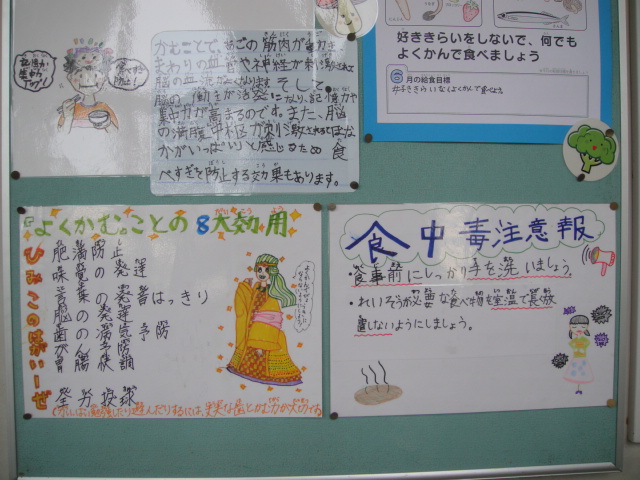 かむことで、あごの筋肉が動き、
まわりの血管や神経が刺激されて
脳の血流がよくなります。そして、
脳の働きが活発になり、記憶力や
集中力が高まるのです。また、脳
の満腹中枢が刺激されるて「おな
かがいっぱい」と感じるため、食
べすぎを防止する効果もあります。
好ききらいをしないで、何でも
よくかんで食べましょう
6月の給食目標
好ききらいなくよくかんで食べよう
『よくかむ。ことの8大効用
ひみこのはがいーぜ
肥満防止
味覚の発達
言葉の発音はっきり
脳の発達
歯の病気予防
がん予防
胃腸快調
全力投球
食中毒注意報
食事前にしっかり手を洗いましょう。
・れいぞうが必要な食べ物を室温で長放
置しないようにしましょう。